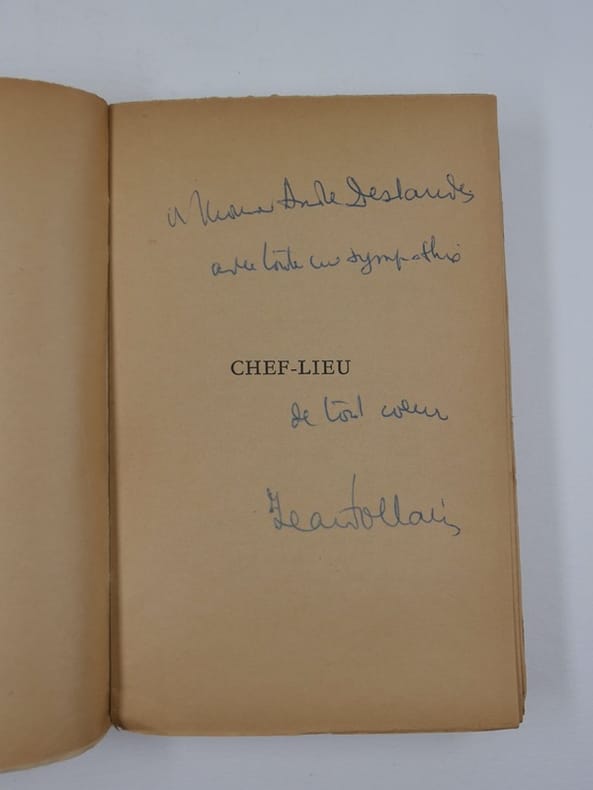 à André Deslandes
avec toute ma sympathie
CHEF-LIEU
de tout coeur
Jean Follain